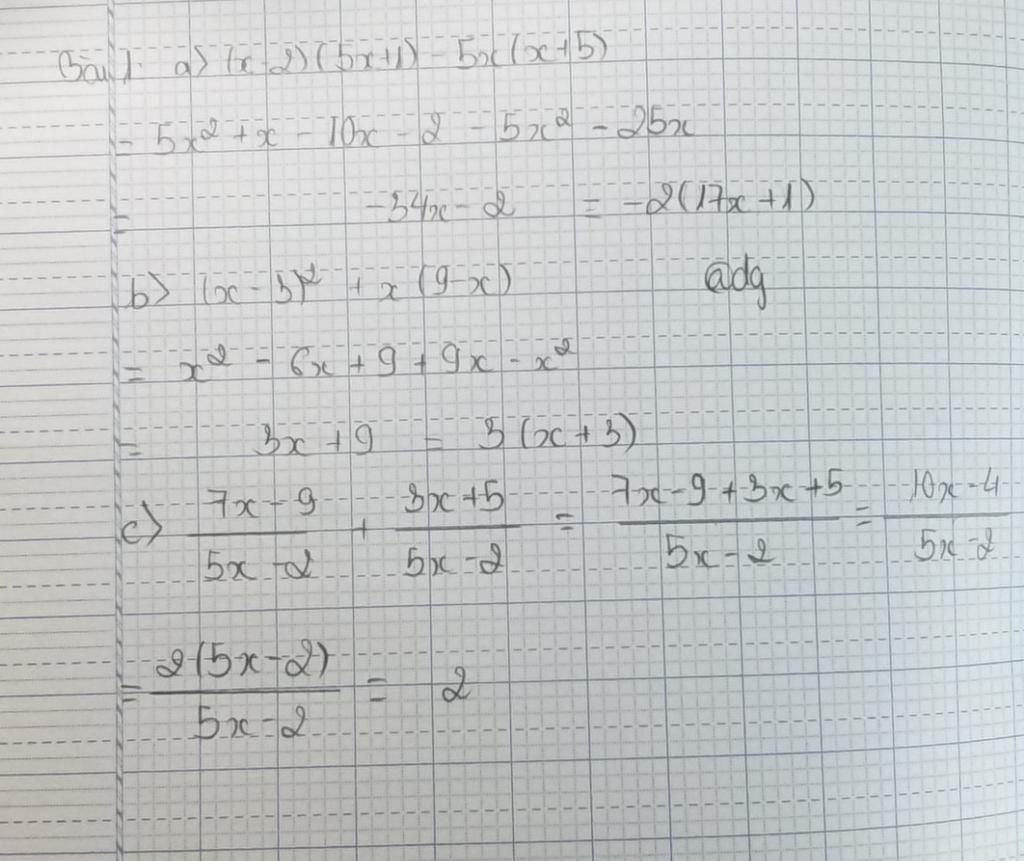 Bài 1: a) (x-2)(5x+1) - 5x(x+5)
= 5x² + x - 10x - 2 - 5x² - 25x
= -34x - 2 = -2(17x+1)
b) (x-3)² + x(9-x)
@dg
= x² - 6x + 9 + 9x - x²
= 3x + 9 = 3(x+3)
c) (7x-9)/(5x-2) + (3x+5)/(5x-2) = (7x-9+3x+5)/(5x-2) = (10x-4)/(5x-2)
= 2(5x-2)/(5x-2) = 2